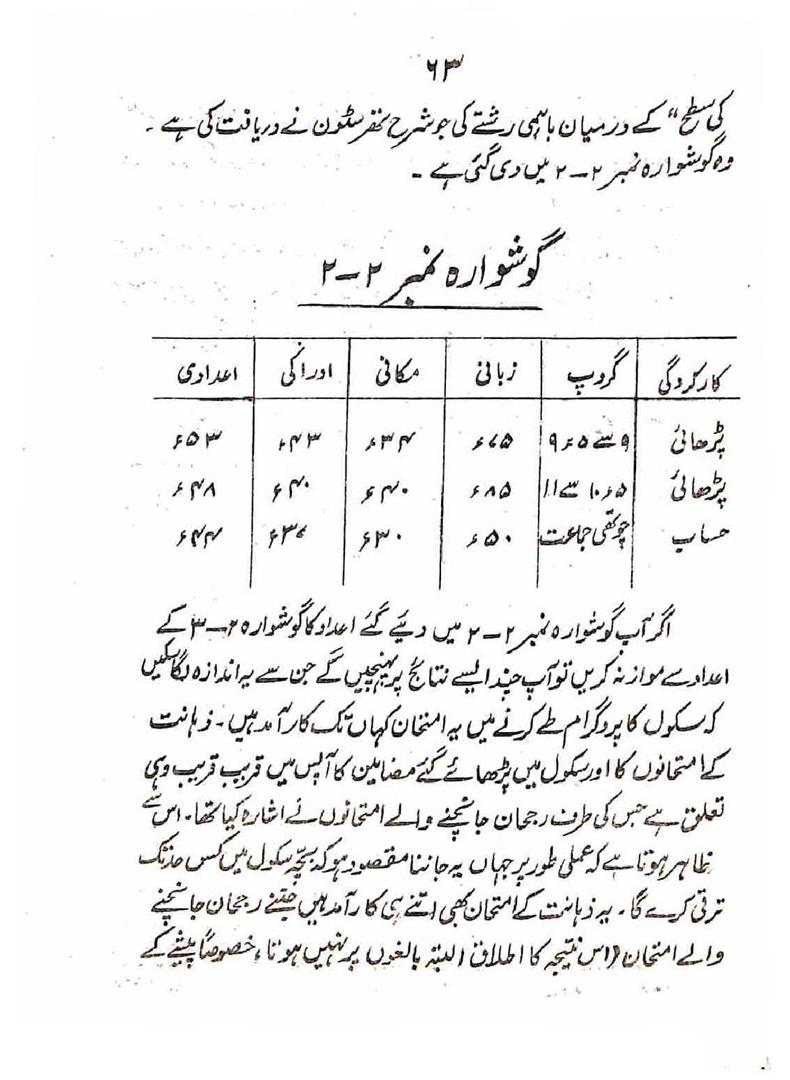 ۶۳
کی سطح“ کے درمیان باہمی رشتے کی جو شرح تھرسٹون نے دریافت کی ہے ۔
وہ گوشوارہ نمبر ۲-۲ میں دی گئی ہے ۔
گوشوارہ نمبر ۲-۲
کارکردگی گروپ زبانی مکانی ادراکی اعدادی
پڑھائی ۹ سے ۹٫۵ ٫۶۷۵ ٫۶۳۴ ٫۴۳ ٫۵۳
پڑھائی ۱۰٫۵ سے ۱۱ ٫۶۸۵ ٫۴۰ ٫۴۰ ٫۴۸
حساب چوتھی جماعت ٫۵۰ ٫۳۰ ٫۴۴
اگر آپ گوشوارہ نمبر ۲-۲ میں دیئے گئے اعداد کا گوشوارہ ۲-۳ کے
اعداد سے موازنہ کریں تو آپ چند ایسے نتائج پر پہنچیں گے جن سے یہ اندازہ لگا سکیں
کہ سکول کا پروگرام طے کرنے میں یہ امتحان کہاں تک کارآمد ہیں۔ ذہانت
کے امتحانوں کا اور سکول میں پڑھائے گئے مضامین کا آپس میں قریب قریب وہی
تعلق ہے جس کی طرف رجحان جانچنے والے امتحانوں نے اشارہ کیا تھا۔ اس سے
ظاہر ہوتا ہے کہ عملی طور پر جہاں یہ جاننا مقصود ہو کہ بچہ سکول میں کس حد تک
ترقی کرے گا۔ یہ ذہانت کے امتحان بھی اتنے ہی کارآمد ہیں جتنے رجحان جانچنے
والے امتحان (اس نتیجہ کا اطلاق البتہ بالغوں پر نہیں ہوتا، خصوصاً پیشے کے